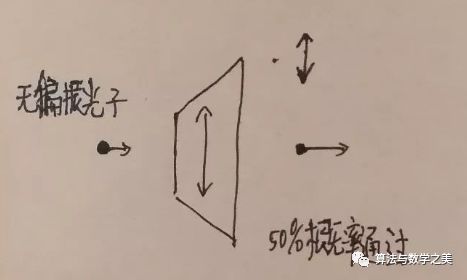 无偏振光子
50%概率通过
算法与数学之美